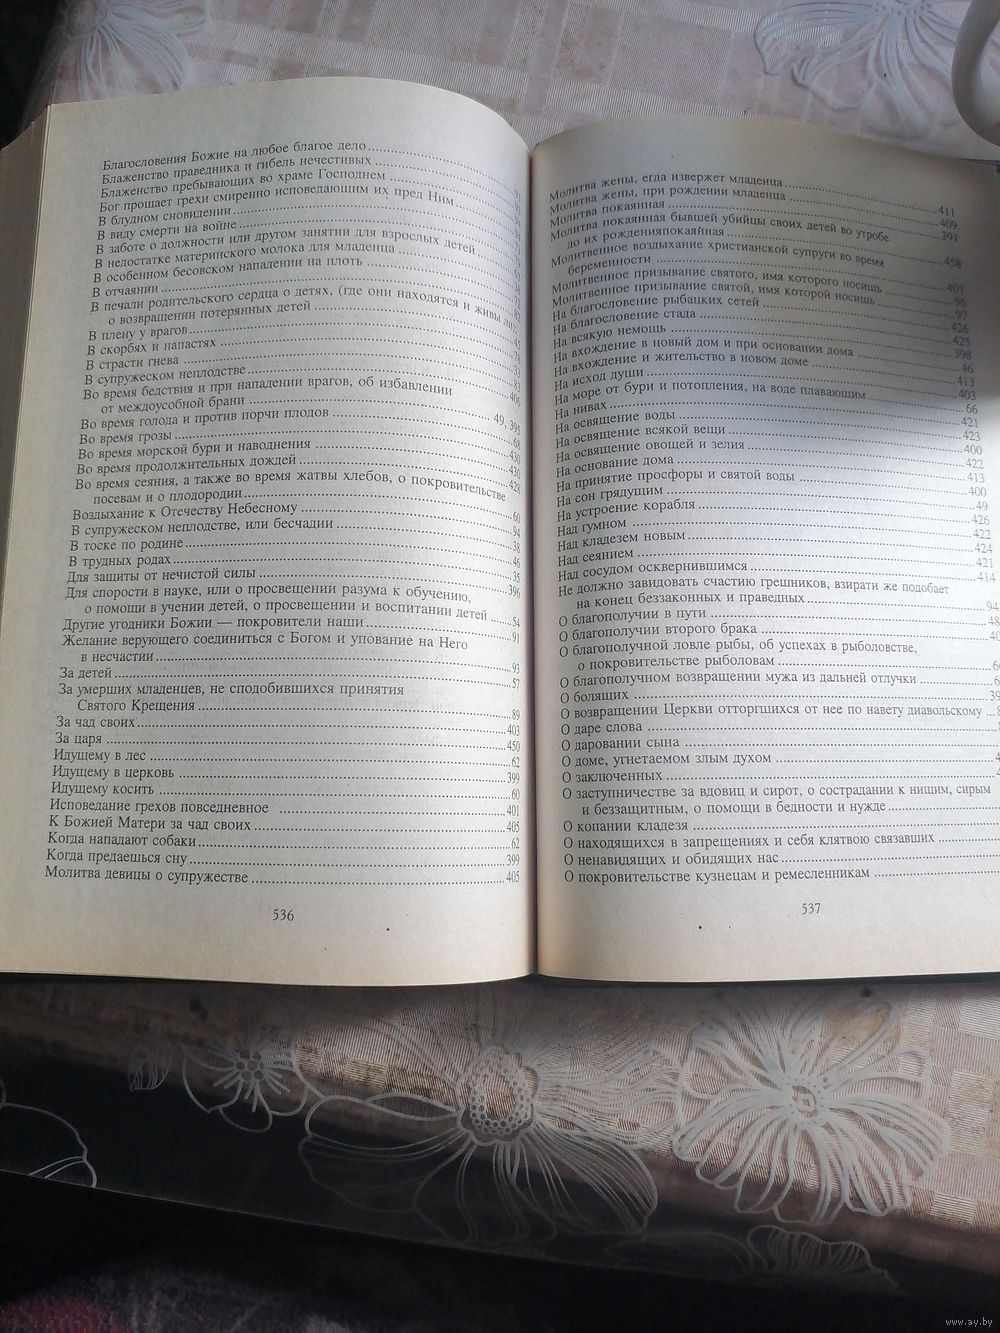 Благословения Божие на любое благое дело
Блаженство праведника и гибель нечестивых
Блаженство пребывающих во храме Господнем
Бог прощает грехи смиренно исповедающим их пред Ним
В блудном сновидении
В виду смерти на войне
В заботе о должности или другом занятии для взрослых детей
В недостатке материнского молока для младенца
В особенном бесовском нападении на плоть
В отчаянии
В печали родительского сердца о детях, (где они находятся и живы ли),
о возвращении потерянных детей
В плену у врагов
В скорбях и напастях
В страсти гнева
В супружеском неплодстве
Во время бедствия и при нападении врагов, об избавлении
от междоусобной брани
Во время голода и против порчи плодов 49, 395
Во время грозы 68
Во время морской бури и наводнения 430
Во время продолжительных дождей 430
Во время сеяния, а также во время жатвы хлебов, о покровительстве
посевам и о плодородии
Воздыхание к Отечеству Небесному 60
В супружеском неплодстве, или бесчадии 94
В тоске по родине 38
В трудных родах 46
Для защиты от нечистой силы 35
Для спорости в науке, или о просвещении разума к обучению,
о помощи в учении детей, о просвещении и воспитании детей 54
Другие угодники Божии — покровители наши 91
Желание верующего соединиться с Богом и упование на Него
в несчастии 93
За детей 57
За умерших младенцев, не сподобившихся принятия
Святого Крещения 89
За чад своих 403
За царя 450
Идущему в лес 62
Идущему в церковь 399
Идущему косить 60
Исповедание грехов повседневное 401
К Божией Матери за чад своих 405
Когда нападают собаки 62
Когда предаешься сну 399
Молитва девицы о супружестве 405
536
Молитва жены, егда извержет младенца 411
Молитва жены, при рождении младенца 409
Молитва покаянная 391
Молитва покаянная бывшей убийцы своих детей во утробе
до их рожденияпокаяная 458
Молитвенное воздыхание христианской супруги во время
беременности 407
Молитвенное призывание святого, имя которого носишь 96
Молитвенное призывание святой, имя которой носишь 97
На благословение рыбацких сетей 426
На благословение стада 425
На всякую немощь 398
На вхождение в новый дом и при основании дома 46
На вхождение и жительство в новом доме 413
На исход души 403
На море от бури и потопления, на воде плавающим 66
На нивах 421
На освящение воды 423
На освящение всякой вещи 400
На освящение овощей и зелия 422
На основание дома 413
На принятие просфоры и святой воды 400
На сон грядущим 49
На устроение корабля 426
Над гумном 422
Над кладезем новым 424
Над сеянием 421
Над сосудом осквернившимся 414
Не должно завидовать счастию грешников, взирати же подобает
на конец беззаконных и праведных 94
О благополучии в пути
О благополучии второго брака
О благополучной ловле рыбы, об успехах в рыболовстве,
о покровительстве рыболовам
О благополучном возвращении мужа из дальней отлучки
О болящих
О возвращении Церкви отторгшихся от нее по навету диавольскому
О даре слова
О даровании сына
О доме, угнетаемом злым духом
О заключенных
О заступничестве за вдовиц и сирот, о сострадании к нищим, сирым
и беззащитным, о помощи в бедности и нужде
О копании кладезя
О находящихся в запрещениях и себя клятвою связавших
О ненавидящих и обидящих нас
О покровительстве кузнецам и ремесленникам
537
www.ay.by